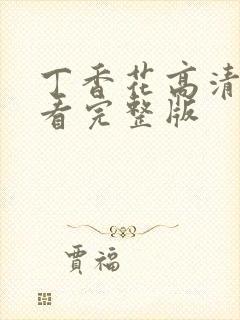 丁香花高清
看完整版
賈福